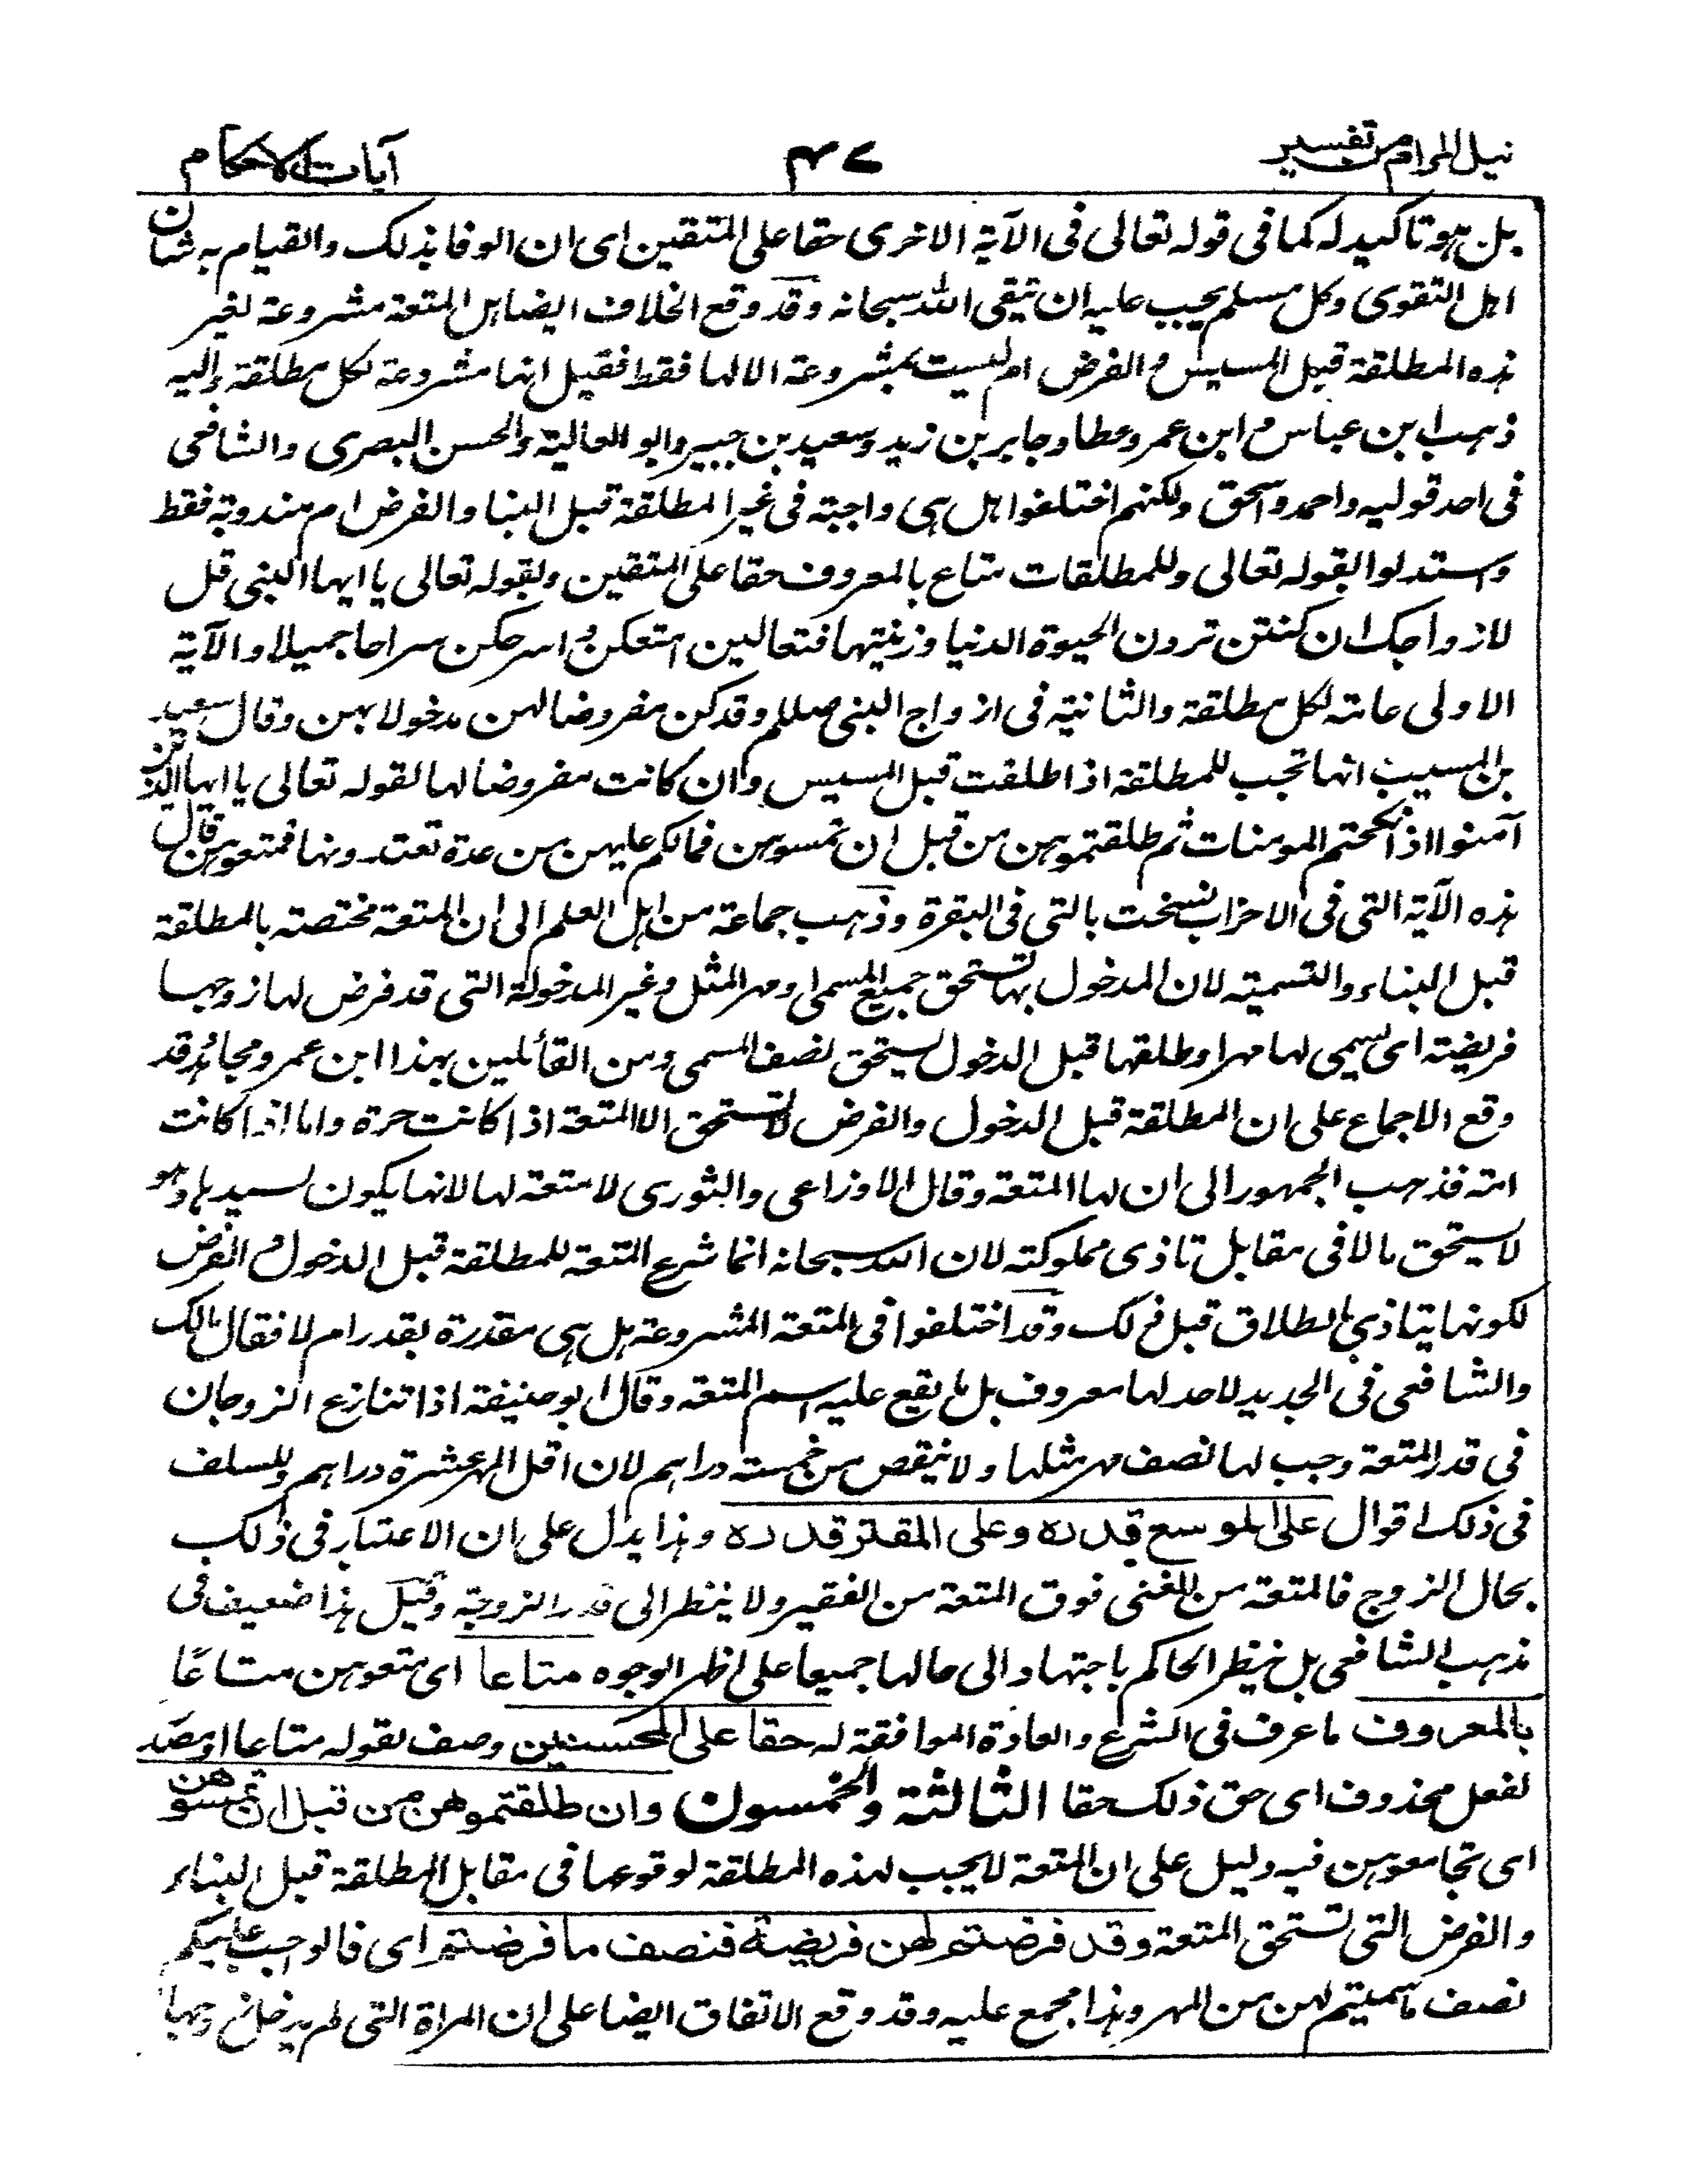 نيل المرام من تفسير
٤٧
آيات الاحكام
بل هو تاكيد له كما فى قوله تعالى فى الآية الاخرى حقا على المتقين اى ان الوفا بذلك والقيام به شان
اهل التقوى وكل مسلم يجب عليه ان يتقى الله سبحانه وقد وقع الخلاف ايضا هل المتعة مشروعة لغير
هذه المطلقة قبل المسيس والفرض ام ليست بمشروعة الا لها فقط فقيل انها مشروعة لكل مطلقة واليه
ذهب ابن عباس وابن عمر وعطا وجابر بن زيد وسعيد بن جبير وابو العالية والحسن البصرى والشافعى
فى احد قوليه واحمد واسحق ولكنهم اختلفوا هل هى واجبة فى غير المطلقة قبل البنا والفرض ام مندوبة فقط
واستدلوا بقوله تعالى وللمطلقات متاع بالمعروف حقا على المتقين وبقوله تعالى يا ايها النبى قل
لازواجك ان كنتن تردن الحيوة الدنيا وزينتها فتعالين امتعكن واسرحكن سراحا جميلا والآية
الاولى عامة لكل مطلقة والثانية فى ازواج النبى صللم وقد كن مفروضا لهن مدخولا بهن وقال سعيد
بن المسيب انها تجب للمطلقة اذا طلقت قبل المسيس وان كانت مفروضا لها لقوله تعالى يا ايها الذين
آمنوا اذا نكحتم المومنات ثم طلقتموهن من قبل ان تمسوهن فما لكم عليهن من عدة تعتدونها فمتعوهن قال
هذه الآية التى فى الاحزاب نسخت بالتى فى البقرة وذهب جماعة من اهل العلم الى ان المتعة مختصة بالمطلقة
قبل البناء والتسمية لان المدخول بها تستحق جميع المسمى او مهر المثل وغير المدخولة التى قد فرض لها زوجها
فريضة اى سمى لها مهرا وطلقها قبل الدخول تستحق نصف المسمى ومن القائلين بهذا ابن عمر ومجاهد وقد
وقع الاجماع على ان المطلقة قبل الدخول والفرض لا تستحق الا المتعة اذا كانت حرة واما اذا كانت
امة فذهب الجمهور الى ان لها المتعة وقال الاوزاعى والثورى لا متعة لها لانها يكون لسيدها وهو
لا يستحق مالا فى مقابل تاذى مملوكته لان الله سبحانه انما شرع المتعة للمطلقة قبل الدخول والفرض
لكونها يتاذى بالطلاق قبل ذلك وقد اختلفوا فى المتعة المشروعة هل هى مقدرة بقدر ام لا فقال مالك
والشافعى فى الجديد لا حد لها معروف بل ما يقع عليه اسم المتعة وقال ابو حنيفة اذا تنازع الزوجان
فى قدر المتعة وجب لها نصف مهر مثلها ولا ينقص من خمسة دراهم لان اقل المهر عشرة دراهم وللسلف
فى ذلك اقوال على الموسع قدره وعلى المقتر قدره وهذا يدل على ان الاعتبار فى ذلك
بحال الزوج فالمتعة من الغنى فوق المتعة من الفقير ولا ينظر الى قدر الزوجة وقيل هذا ضعيف فى
مذهب الشافعى بل ينظر الحاكم باجتهاده الى حالها جميعا على اظهر الوجوه متاعا اى متعوهن متاعًا
بالمعروف ما عرف فى الشرع والعادة الموافقة له حقا على المحسنين وصف لقوله متاعا او مصدر
لفعل محذوف اى حق ذلك حقا الثالثة والخمسون وان طلقتموهن من قبل ان تمسوهن
اى تجامعوهن فيه دليل على ان المتعة لا يجب لهذه المطلقة لوقوعها فى مقابل المطلقة قبل البناء
والفرض التى تستحق المتعة وقد فرضتم لهن فريضة فنصف ما فرضتم اى فالواجب عليكم
نصف ما سميتم لهن من المهر وهذا مجمع عليه وقد وقع الاتفاق ايضا على ان المراة التى لم يدخل زوجها